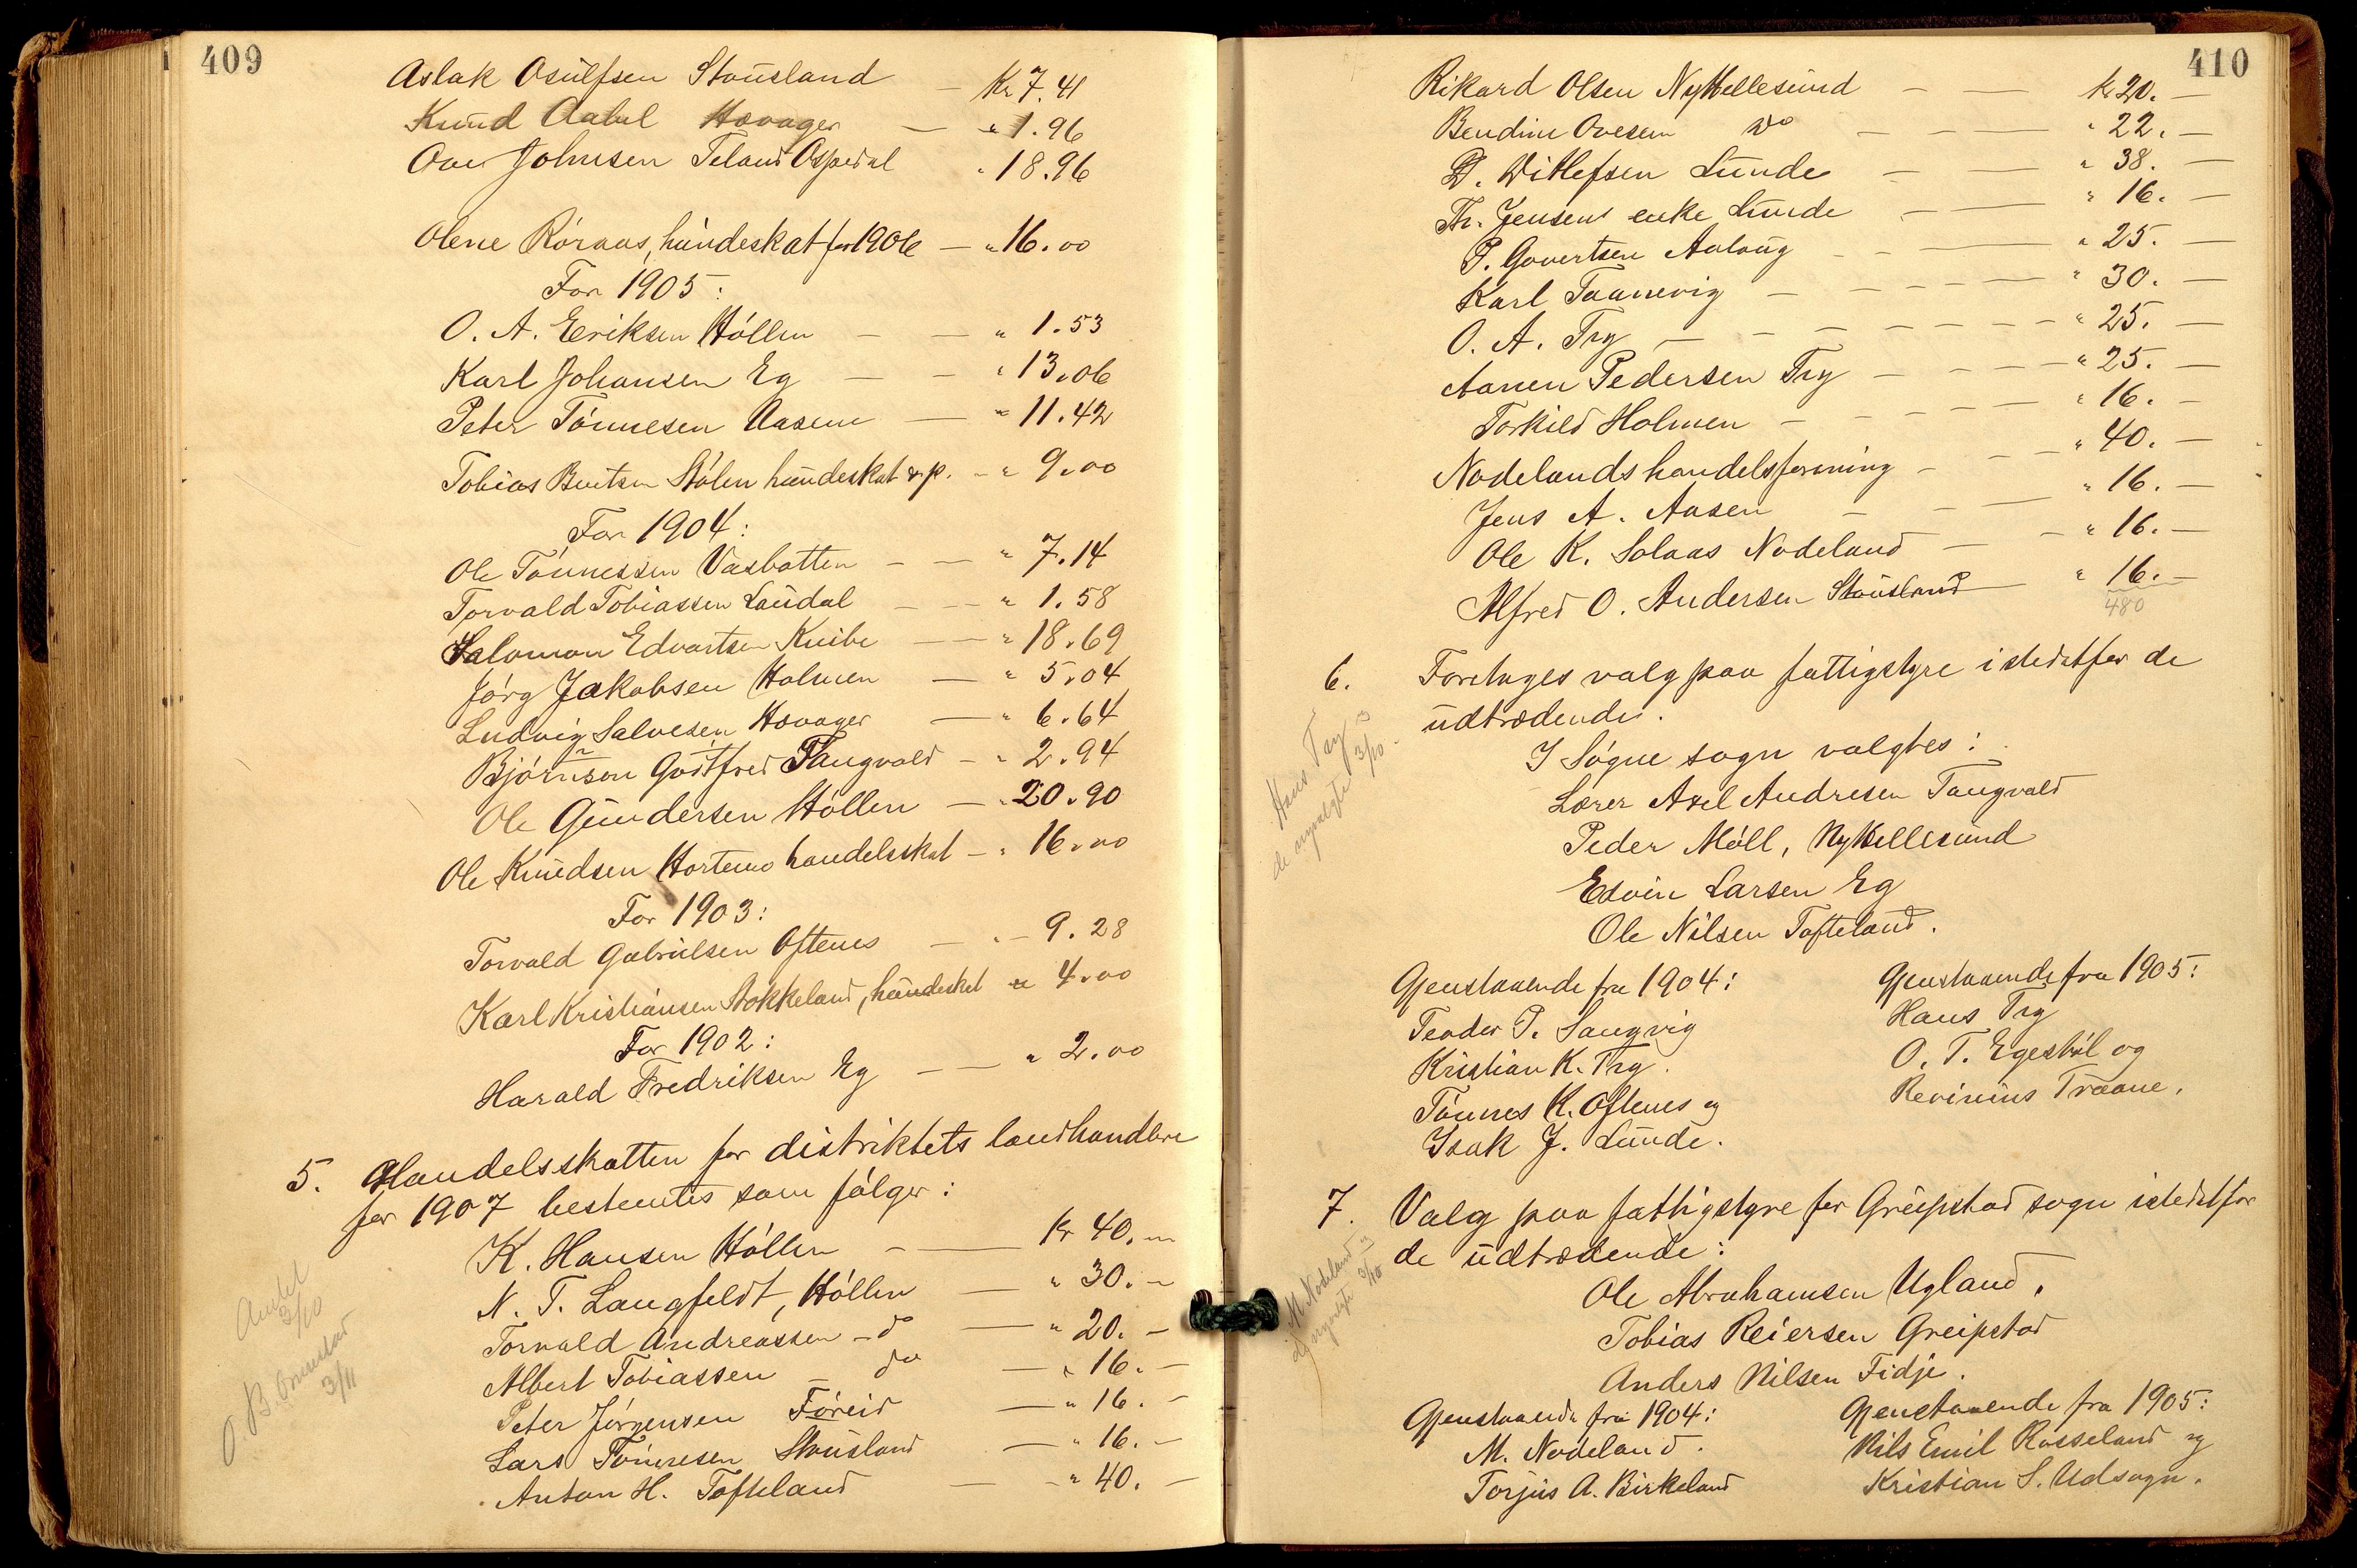 409
Aslak Osülfsen Stausland — Kr 7.41
Knud Aabel Høvager — " 1.96
Ove Johnsen Teland Ospedal " 18.96
Olene Röraas, hündeskat for 1906 — " 16.00
For 1905:
O. A. Eeriksen Höllen — — " 1.53
Karl Johansen Eg — — " 13.06
Peter Tönnesen Aasene — " 11.42
Tobias Bentsen Stölen hündeskat &p. — " 9.00
For 1904:
Ole Tönnessen Vasbotten — — " 7.14
Torvald Tobiassen Laudal — — " 1.58
Salomon Edvartsen Knibe — — " 18.69
Jörg Jakobsen Holmen — " 5.04
Ludvig Salvesen Høvager — " 6.64
Björnson Godtfred Tangvald — " 2.94
Ole Gündersen Höllen — " 20.90
Ole Knüdsen Hortemo handelsskat — " 16.00
For 1903:
Torvald Gabrielsen Oftenes — " — 9.28
Karl Kristiansen Stokkeland, hündeskat " 4.00
For 1902:
Harald Fredriksen Eg — — " 2.00
5. Handelsskatten for distriktets landhandlere
for 1907 bestemtes som fölger:
K. Hansen Höllen — — Kr 40.—
N. T. Langfeldt, Höllen — " 30.—
Torvald Andreassen — do — " 20.—
Albert Tobiassen — do — " 16.—
Peter Jörgensen Föreid — " 16.—
Lars Tönnesen Stausland — " 16.—
Anton H. Tofteland — — " 40.—
3/10
O. B.
3/11
410
Rikard Olsen NyHellesund — — Kr 20.—
Bendine Ovesen Do — — — " 22.—
D. Ditlefsen Lunde — — " 38.—
Th. Jensens enke Lunde — — " 16.—
P. Govertsen Aalaug — — — " 25.—
Karl Taanevig — — — — — " 30.—
O. A. Try — — — — — — — " 25.—
Aanen Pedersen Try — — — — " 25.—
Torkild Holmen — — — — — " 16.—
Nodelands handelsforening — — — " 40.—
Jens A. Aasen — — — " 16.—
Ole K. Solaas Nodeland — — — " 16.—
Alfred O. Andersen Stausland — " 16.—
480
6. Foretages valg paa fattigstyre istedetfor de
üdtrædende.
I Sögne sogn valgtes:
Lærer Axel Andresen Tangvald
Peder Möll, NyHellesund
Edvin Larsen Eg
Ole Nilsen Tofteland.
Gjenstaaende fra 1904:
Teodor T. Sangvig
Kristian K. Try.
Tönnes K. Oftenes og
Isak J. Lunde.
Gjenstaaende fra 1905:
Hans Try
O. T. Egestöl og
Revinius Traane.
Hans Try og
de nyvalgte 3/10
7. Valg paa fattigstyre for Greipstad sogn istedetfor
de üdtrædende:
Ole Abrahamsen Ugland.
Tobias Reiersen Greipstad
Anders Nilsen Fidje.
Gjenstaaende fra 1904:
M. Nodeland.
Torjus A. Birkeland
Gjenstaaende fra 1905:
Nils Emil Rosseland og
Kristian S. Udsogn.
M Nodeland og
de nyvalgte 3/10